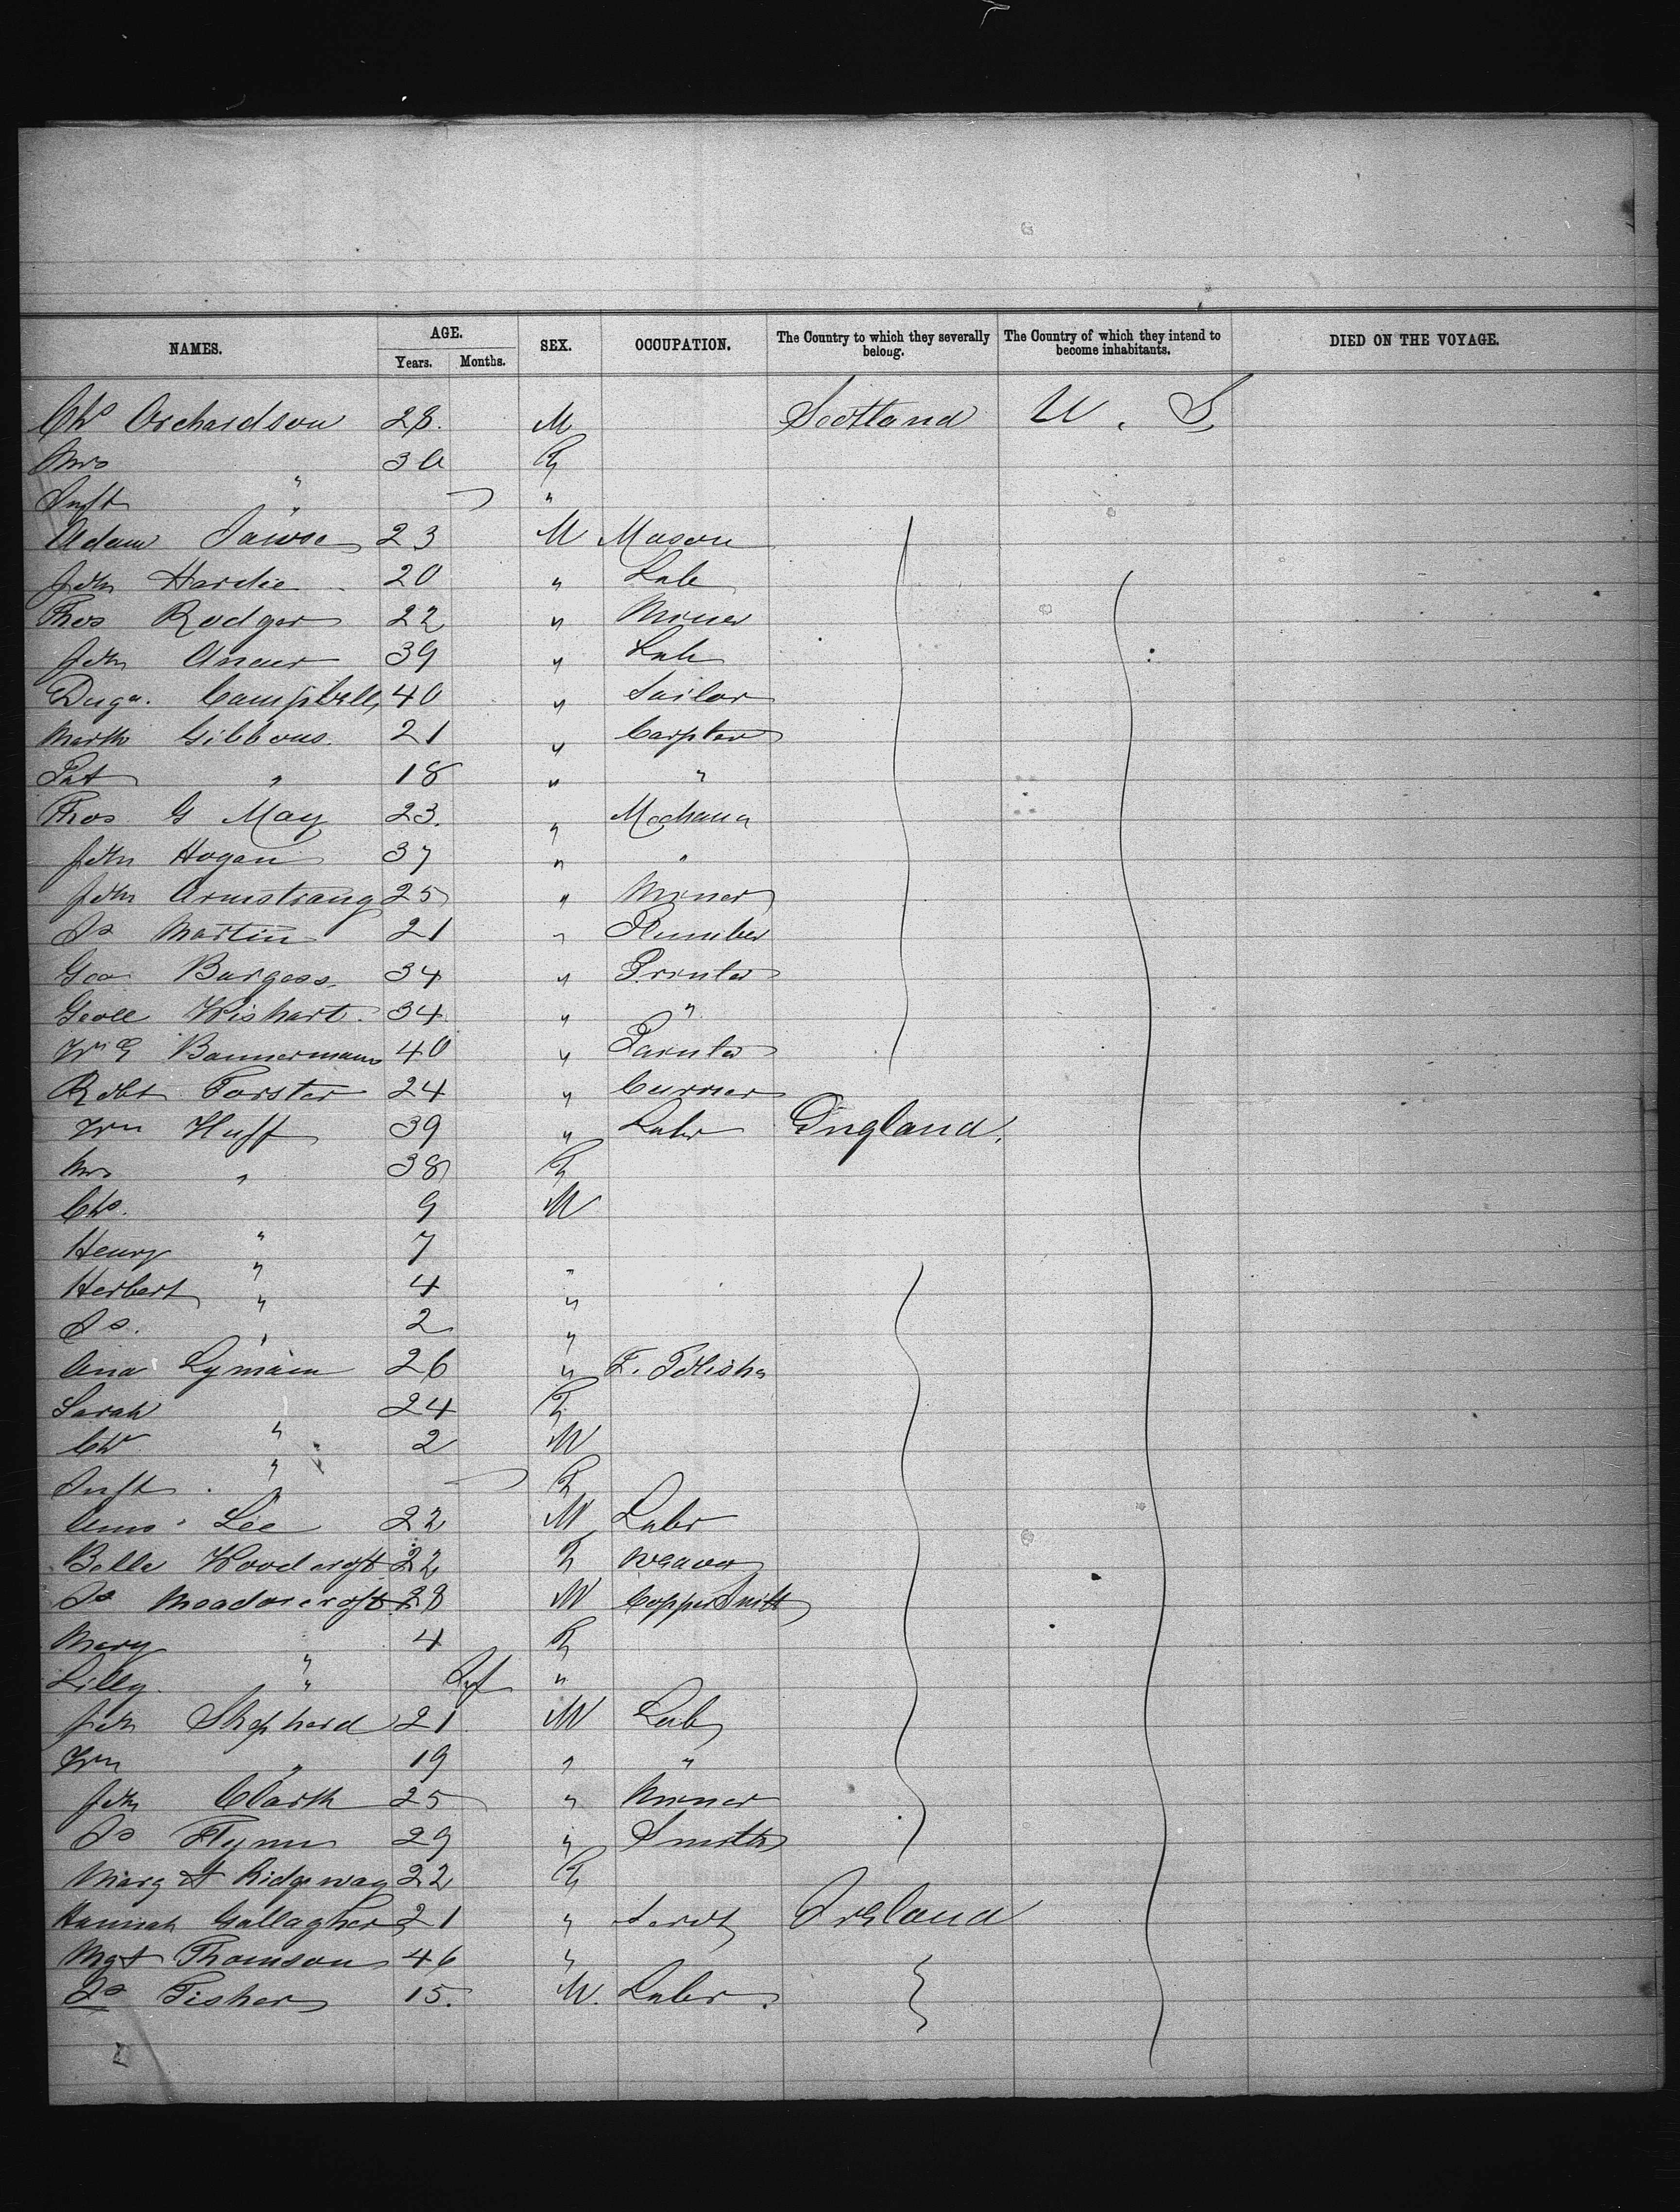 NAMES. AGE. Years. Months. SEX. OCCUPATION. The Country to which they severally belong. The Country of which they intend to become inhabitants. DIED ON THE VOYAGE.
Chs Orchardson 28. M Scotland U. S
Mrs " 30 F
Inft " "
Adam 23 M Mason
John Hardie 20 " Lab
Thos Rodger 22 " Miner
John 39 " Lab
Duga. Campbell 40 " Sailor
Gibbons. 21 " Carpter
Pat " 18 " "
Thos G May 23. "
John Hogan 37 " "
John Armstrong 25 " Miner
Js Martin 21 " Plumber
Geo Burgess 34 " Printer
Wishart 34 " "
Wm Bannerman 40 " Painter
Robt Forster 24 " Currier
Wm Huff 39 " Labr England.
Mrs " 38 F
Chs. " 9 M
Henry " 7 "
Herbert " 4 "
Js. " 2 "
26 "
Sarah " 24 F
Chs " 2 M
Inft. " F
Lee 22 M Labr
Bella Woodcroft 22 F Weaver
Js Meadowcroft 28 M CopperSmith
Mary " 4 F
Lilly. " Inf "
John Shepherd 21 M Lab
Wm " 19 " "
John 25 " Miner
Js Flynn 29 " Smith
Margt Ridgeway 22 F
Hannah Gallagher 21 " Servt Ireland
Mgt Thomson 46 "
Js Fisher 15. M. Labr.